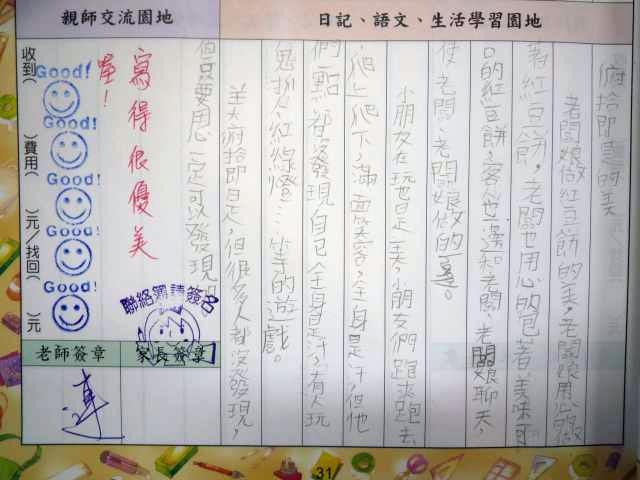 親師交流園地
日記、語文、生活學習園地
俯拾即是的美
老闆娘做紅豆餅的美,老闆娘用心做
著紅豆餅,老闆也用心的包著美味可
口的紅豆餅,客人也邊和老闆、老闆娘聊天,
使老闆、老闆娘做的
小朋友在玩也是美,小朋友們跑來跑去
爬上爬下,滿面笑容,全身是汗,但他
們一點都沒發現自己全身是汗,有人玩
鬼抓人、紅綠燈…等的遊戲。
美俯拾即是,但很多人都沒發現,
但只要用心一定可以發現
寫得很優美
喔!
Good!
Good!
Good!
Good!
Good!
收到( )費用( )元/找回( )元
聯絡網請簽名
老師簽章
家長簽章
31